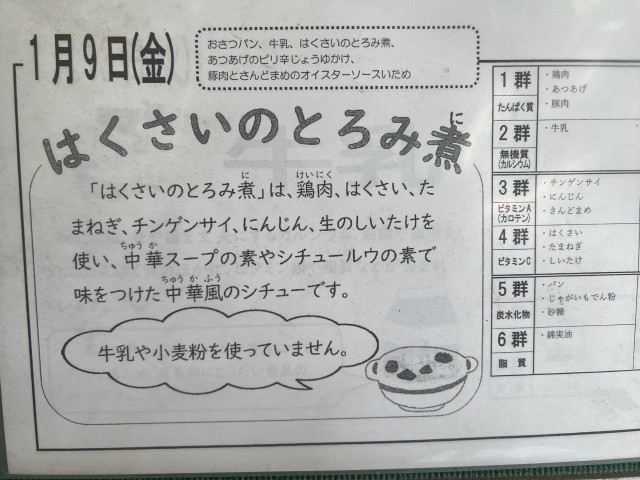 1月9日(金)
おさつパン、牛乳、はくさいのとろみ煮、
あつあげのピリ辛じょうゆかけ、
豚肉とさんどまめのオイスターソースいため
はくさいのとろみ煮
に
「はくさいのとろみ煮」は、鶏肉、はくさい、た
に
けいにく
まねぎ、チンゲンサイ、にんじん、生のしいたけを
使い、中華スープの素やシチュールウの素で
ちゅうか
味をつけた中華風のシチューです。
ちゅうかふう
牛乳や小麦粉を使っていません。
1群
たんぱく質
・鶏肉
・あつあげ
・豚肉
2群
無機質
(カルシウム)
・牛乳
3群
ビタミンA
(カロテン)
・チンゲンサイ
・にんじん
・さんどまめ
4群
ビタミンC
・はくさい
・たまねぎ
・しいたけ
5群
炭水化物
・パン
・じゃがいもでん粉
・砂糖
6群
脂質
・綿実油